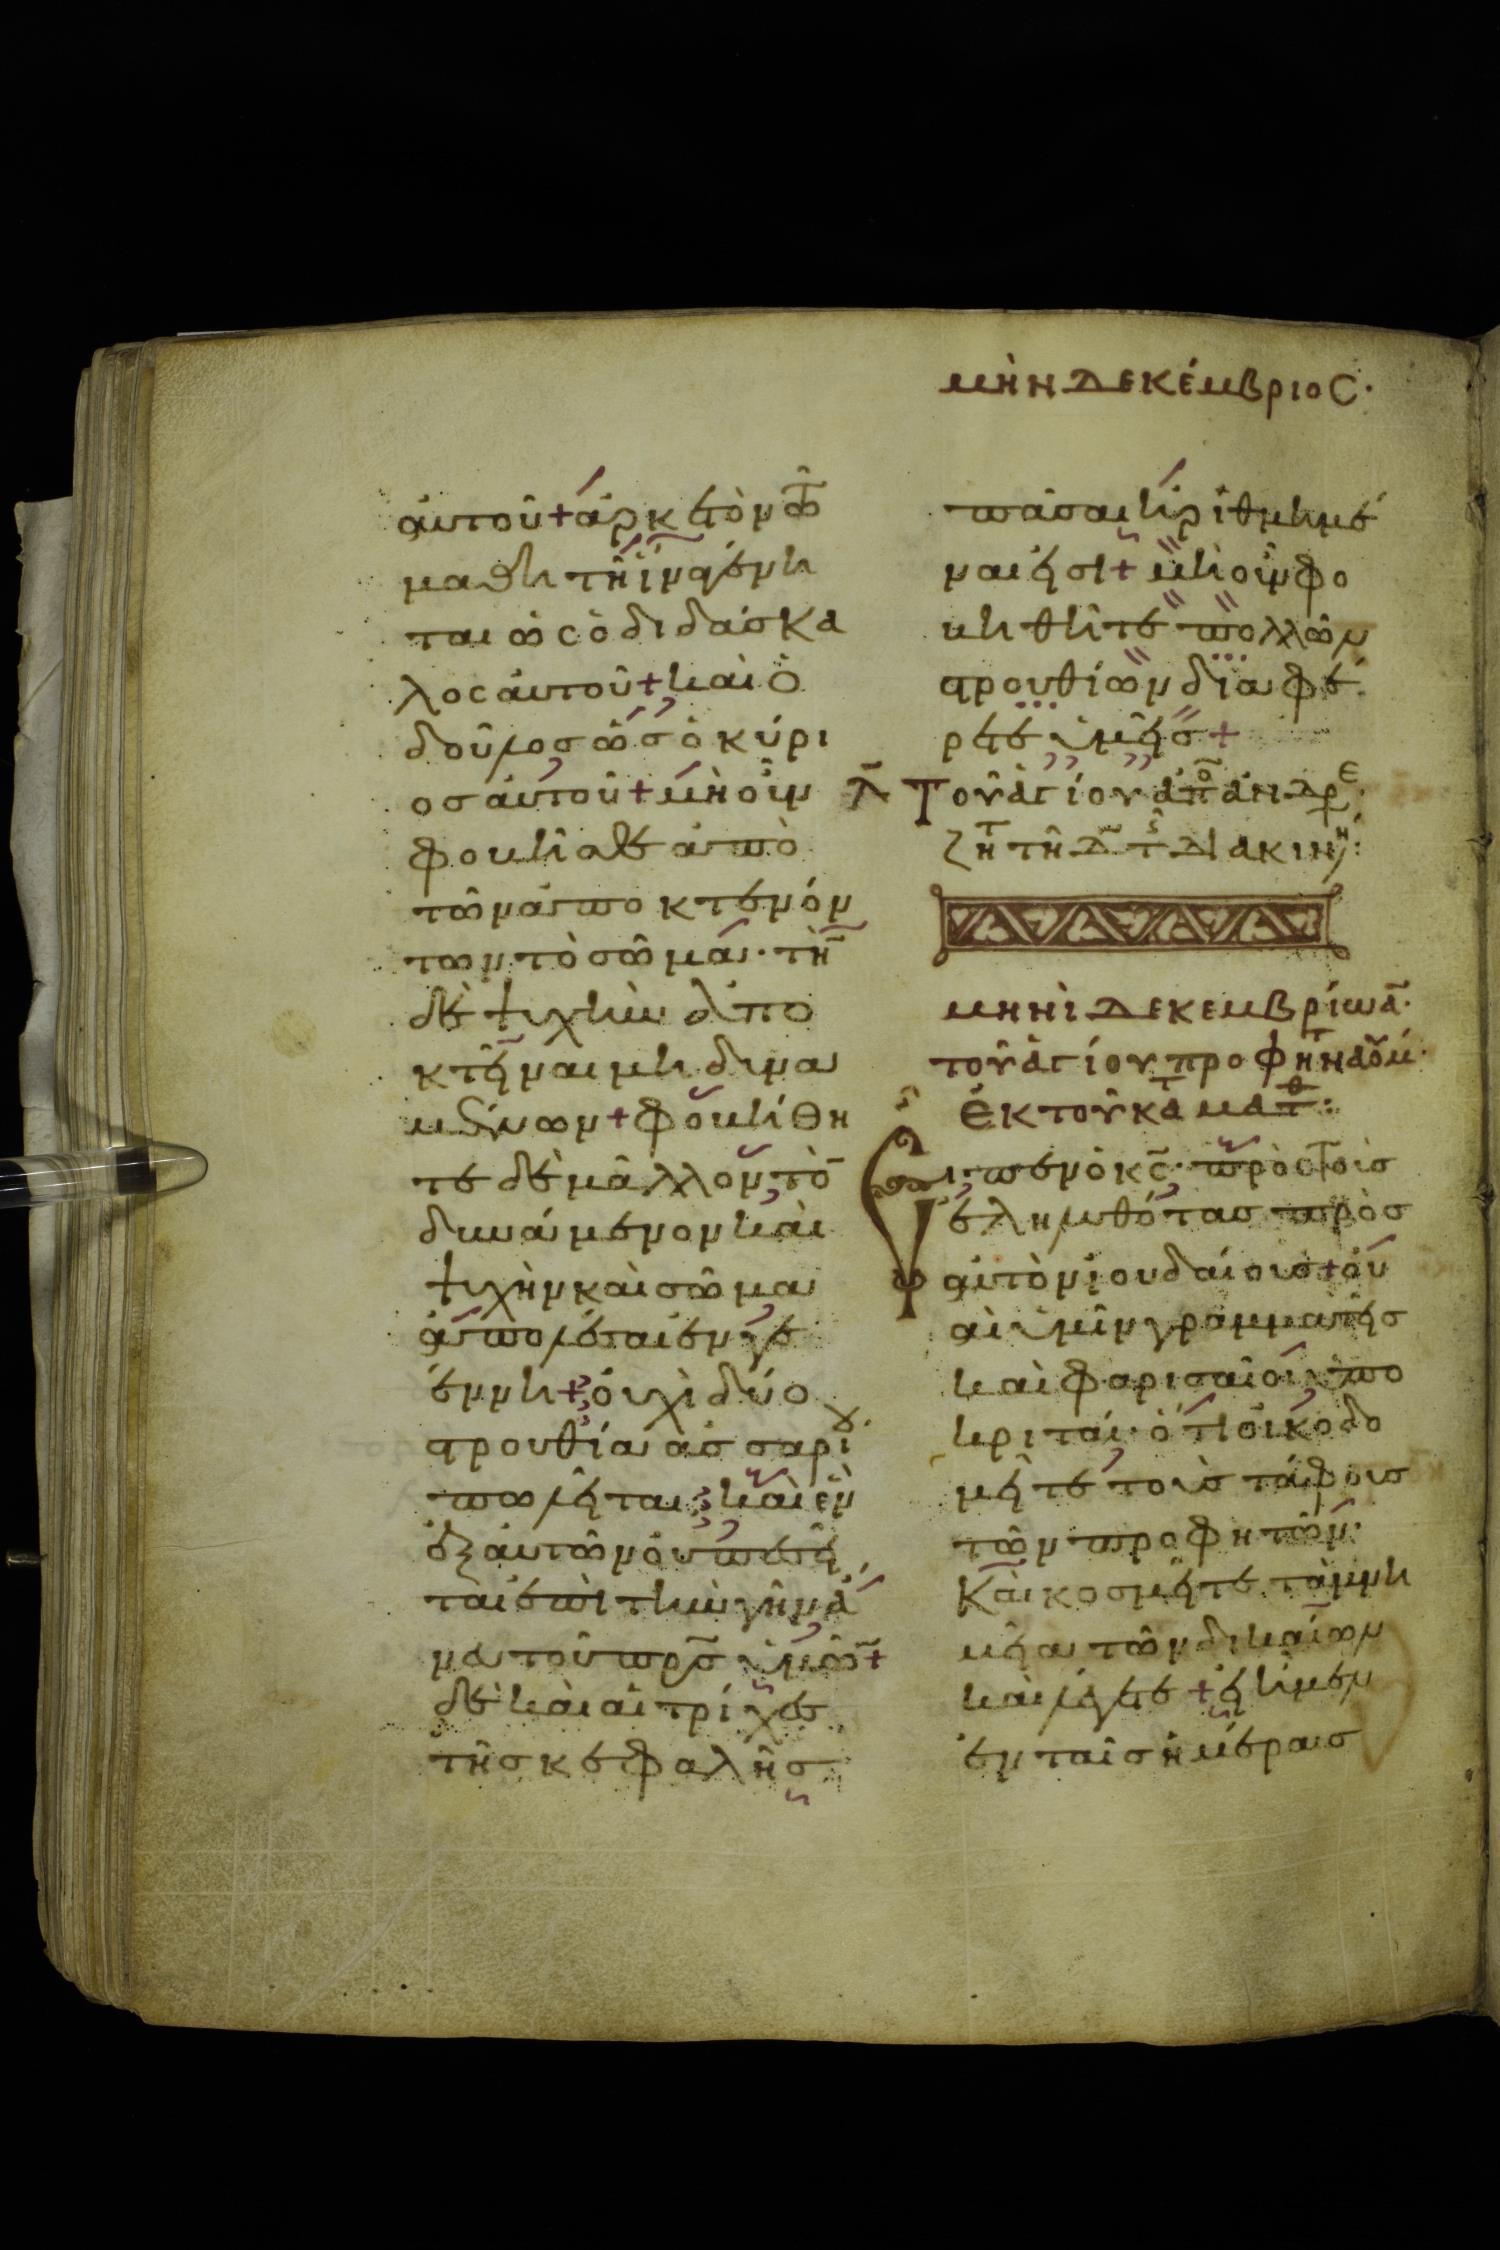 μὴν δεκέμβριος·
αὐτοῦ + ἀρκετὸν τῶ
μαθητῆ ἵνα γένη
ται ὡς ὁ διδάσκα
λος αὐτοῦ + καὶ ὁ
δοῦλος ὡς ὁ κύρι
ος αὐτοῦ + μὴ οὖν
φοβεῖσθε ἀπὸ
τῶν ἀποκτενόν
των τὸ σῶμα· τὴν
δὲ ψυχὴν ἀπο
κτεῖναι μὴ δυνα
μένων + φοβήθη
τε δὲ μᾶλλον τὸν
δυνάμενον καὶ
ψυχὴν καὶ σῶμα
ἀπολέσαι ἐν γε
έννη + οὐχὶ δύο
στρουθία ἀσσαρίου
πωλεῖται; καὶ ἓν
ἐξ αὐτῶν οὐ πεσεῖ
ται ἐπὶ τὴν γῆν ἄ
νευ τοῦ πρς ὑμῶν +
δὲ καὶ αἱ τρίχες
τῆς κεφαλῆς
πᾶσαι ἠριθμημέ
ναι εἰσί + μὴ οὖν φο
βηθῆτε πολλῶν
στρουθίων διαφέ
ρετε ὑμεῖς +
λ τοῦ ἁγίου ἀπο ἀνδρε
ζητ τῆ δ τ διακινη:
μηνὶ δεκεμβρίω α·
τοῦ ἁγίου προφητ ναούμ·
ἐκ τοῦ κατ ματθ:
Εἶπεν ὁ κς· πρὸς τοὺς
ἐληλυθότας πρὸς
αὐτὸν ἰουδαίους + οὐ
αὶ ὑμῖν γραμματεῖς
καὶ φαρισαῖοι ὑπο
κριταί· ὅτι οἰκοδο
μεῖτε τοὺς τάφους
τῶν προφητῶν·
Καὶ κοσμεῖτε τὰ μνη
μεῖα τῶν δικαίων
καὶ λέγετε + εἰ ἦμεν
ἐν ταῖς ἡμέραις